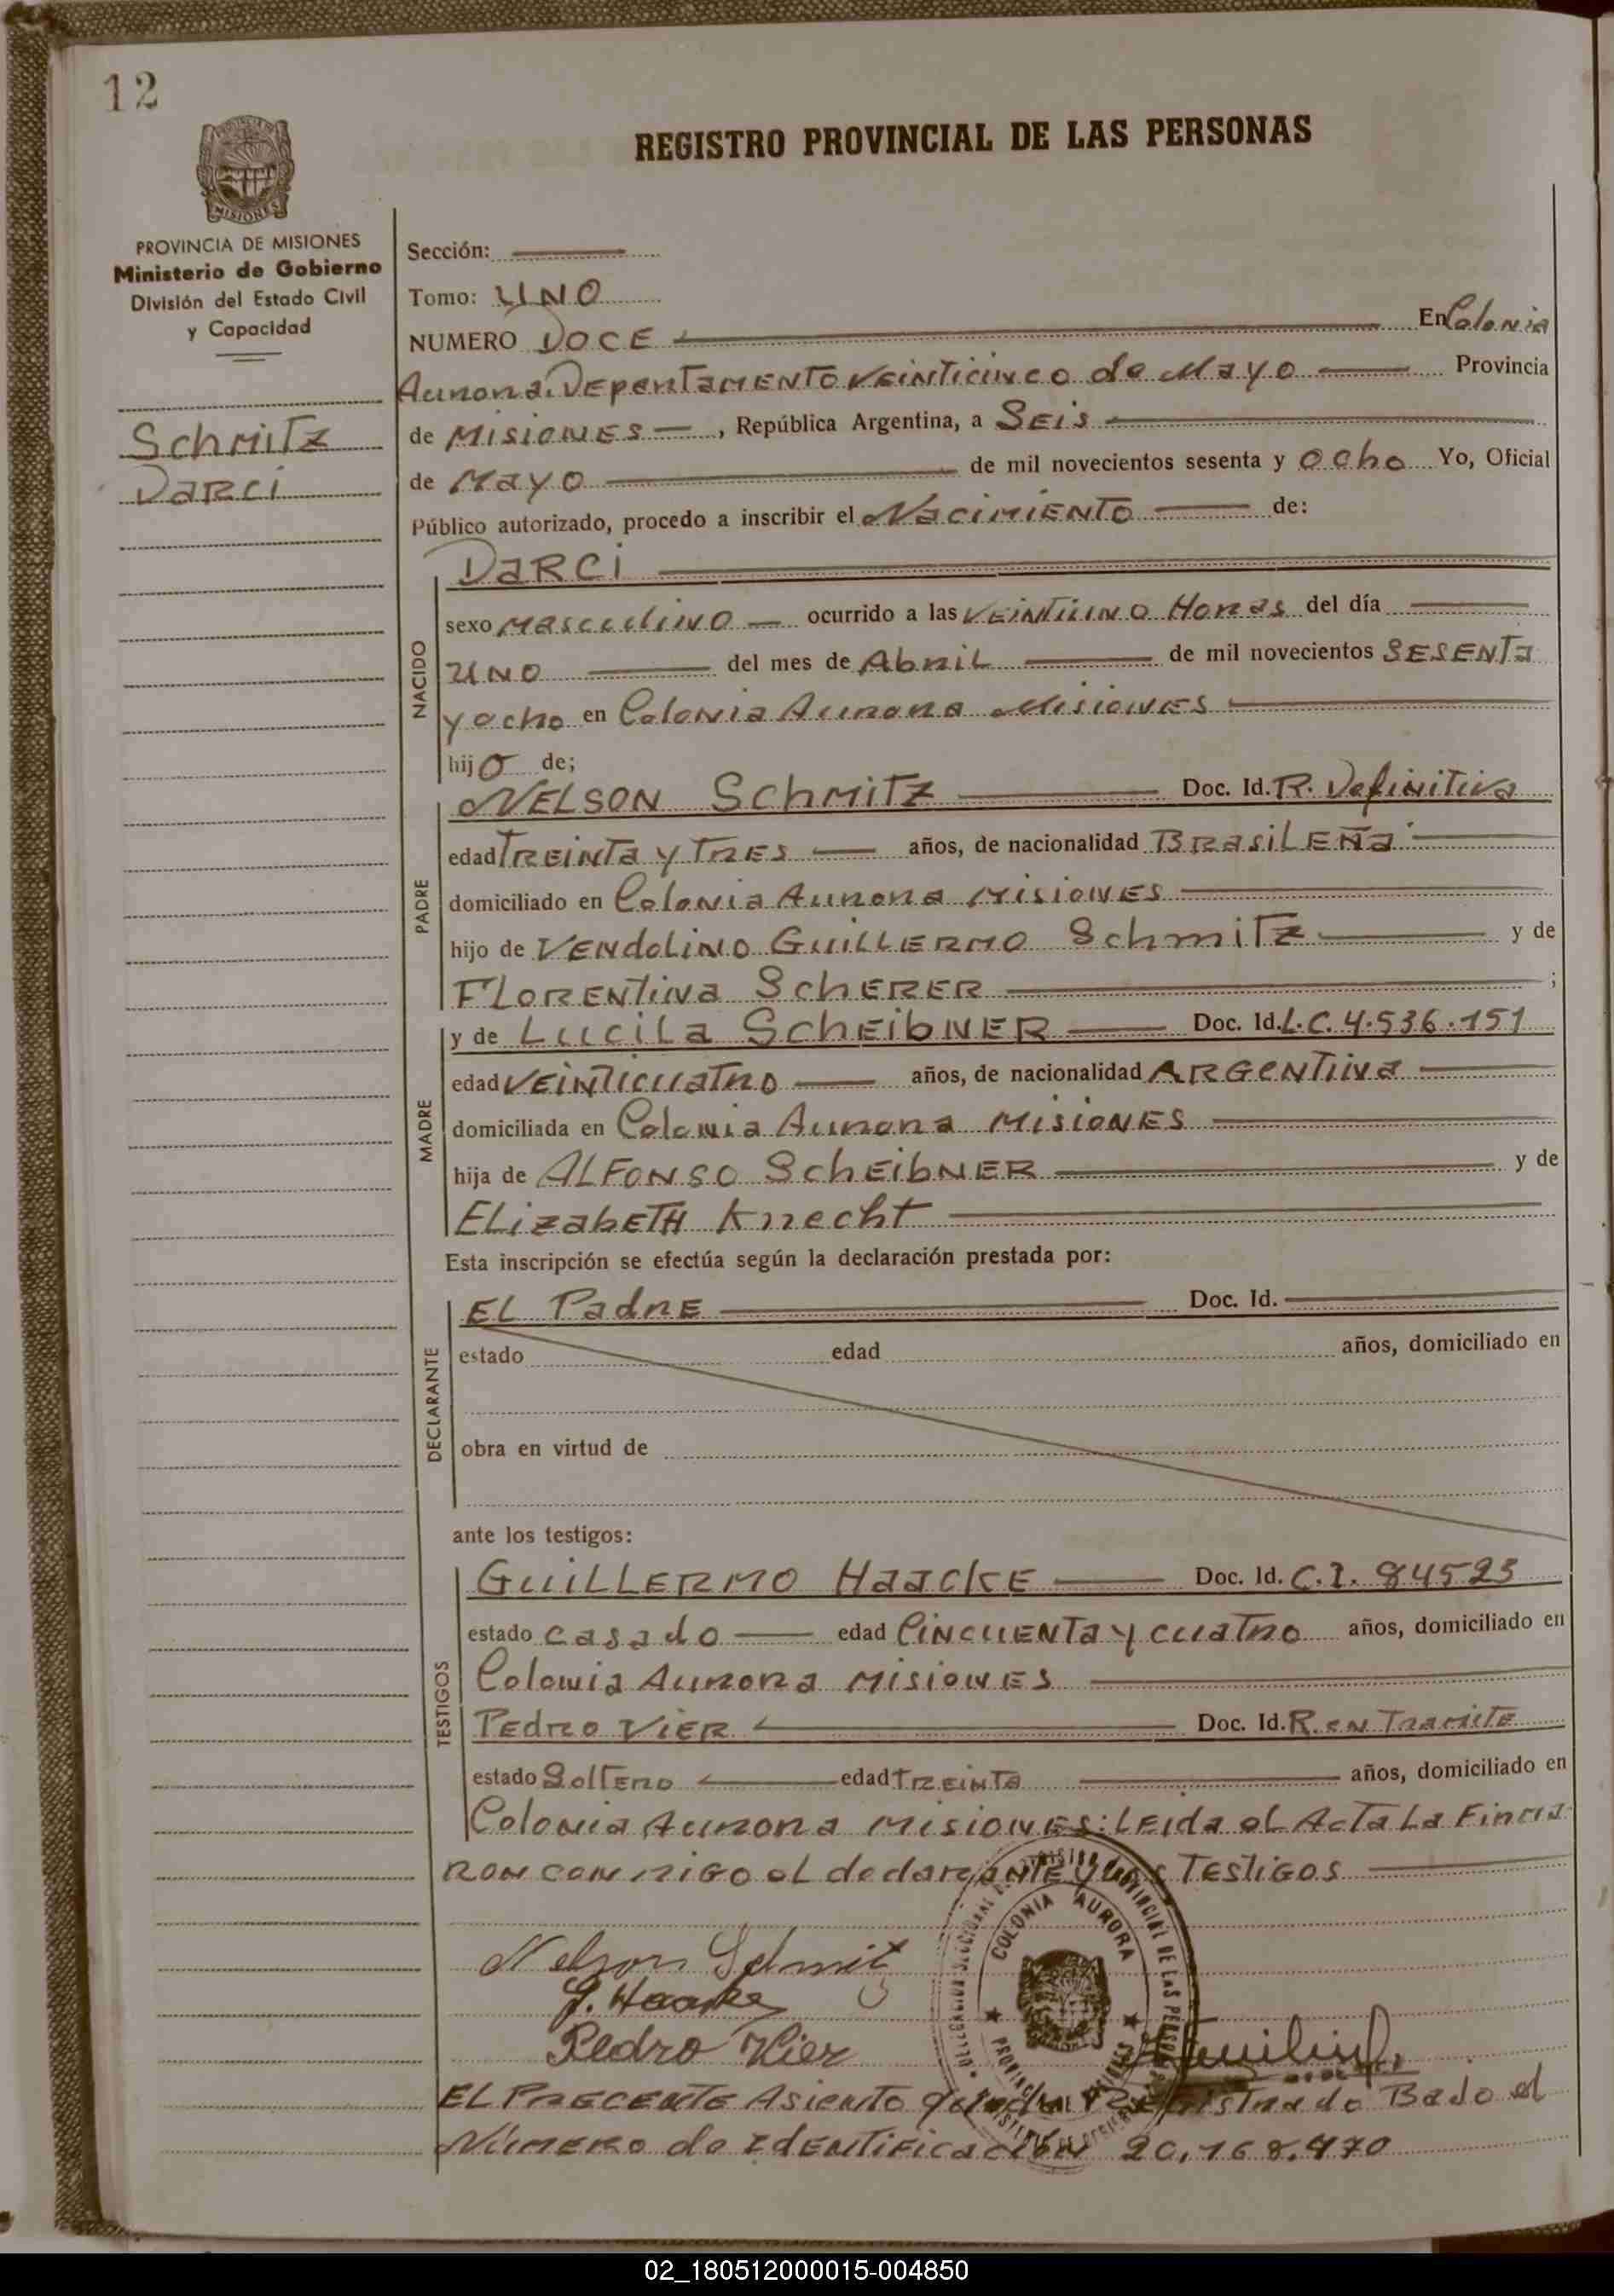 12
REGISTRO PROVINCIAL DE LAS PERSONAS
MISIONES
PROVINCIA DE MISIONES
Ministerio de Gobierno
División del Estado Civil
y Capacidad
Schmitz
Darci
Sección:
Tomo: UNO
NUMERO DOCE En Colonia
Aurora. Departamento Veinticinco de Mayo Provincia
de Misiones , República Argentina, a Seis
de Mayo de mil novecientos sesenta y ocho Yo, Oficial
Público autorizado, procedo a inscribir el Nacimiento de:
NACIDO
Darci
sexo Masculino ocurrido a las Veintiuno Horas del día
uno del mes de Abril de mil novecientos sesenta
y ocho en Colonia Aurora Misiones
hijo de;
PADRE
Nelson Schmitz Doc. Id. R. Definitiva
edad Treinta y Tres años, de nacionalidad Brasileña
domiciliado en Colonia Aurora Misiones
hijo de Vendolino Guillermo Schmitz y de
Florentina Scherer ;
MADRE
y de Lucila Scheibner Doc. Id. L.C. 4.536.151
edad Veinticuatro años, de nacionalidad Argentina
domiciliada en Colonia Aurora Misiones
hija de Alfonso Scheibner y de
Elizabeth Knecht
Esta inscripción se efectúa según la declaración prestada por:
DECLARANTE
El Padre Doc. Id.
estado edad años, domiciliado en
obra en virtud de
ante los testigos:
TESTIGOS
Guillermo Haacke Doc. Id. C.I. 84523
estado casado edad Cincuenta y cuatro años, domiciliado en
Colonia Aurora Misiones
Pedro Vier Doc. Id. R. en Tramite
estado Soltero edad Treinta años, domiciliado en
Colonia Aurora Misiones: Leida el Acta La Firma
ron conmigo el declarante y los Testigos
Nelson Schmitz
G. Haacke
Pedro Vier
COLONIA AURORA
El Precente Asiento queda Registrado Bajo el
Número de Identificación 20,168.470
02_180512000015-004850